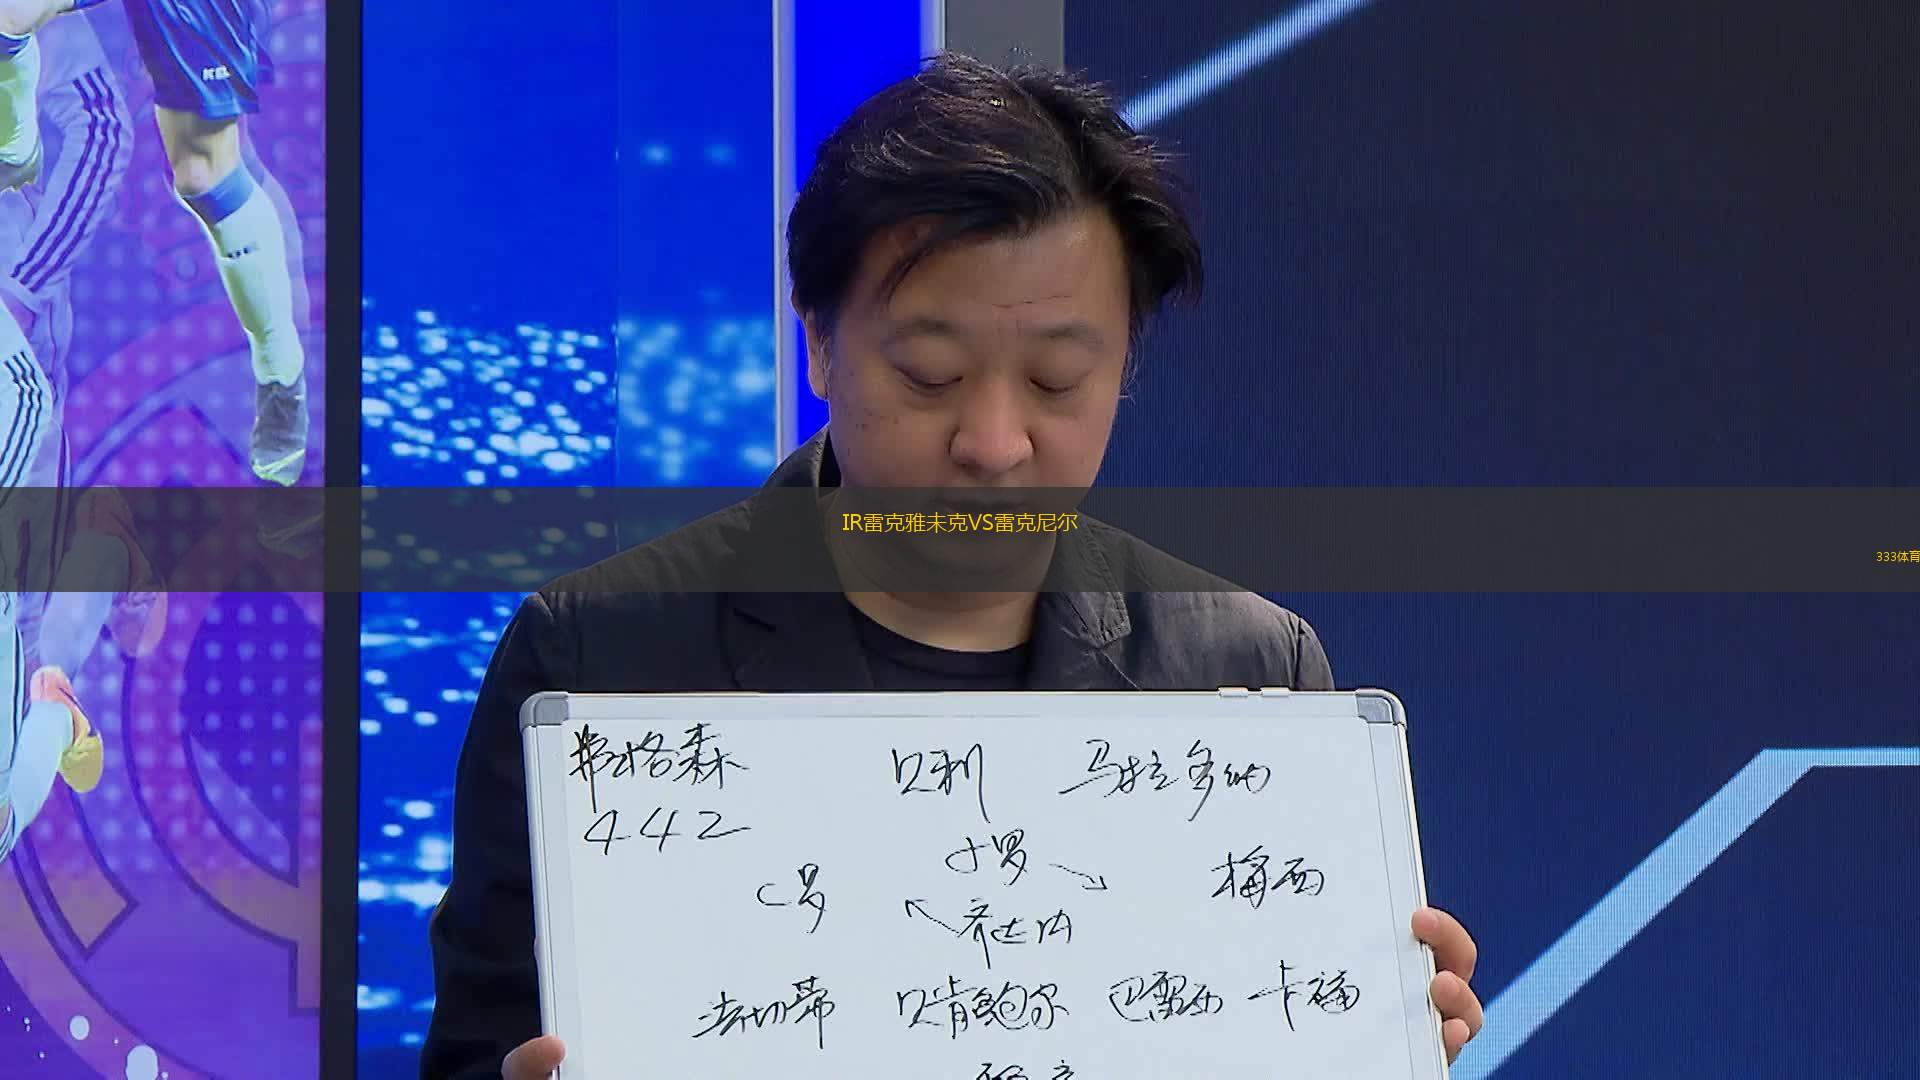 KEL
IR雷克雅未克VS雷克尼尔
333体育
弗格森
贝利 马拉多纳
442
小罗
C罗 梅西
齐达内
法切蒂 贝肯鲍尔 巴雷西 卡福